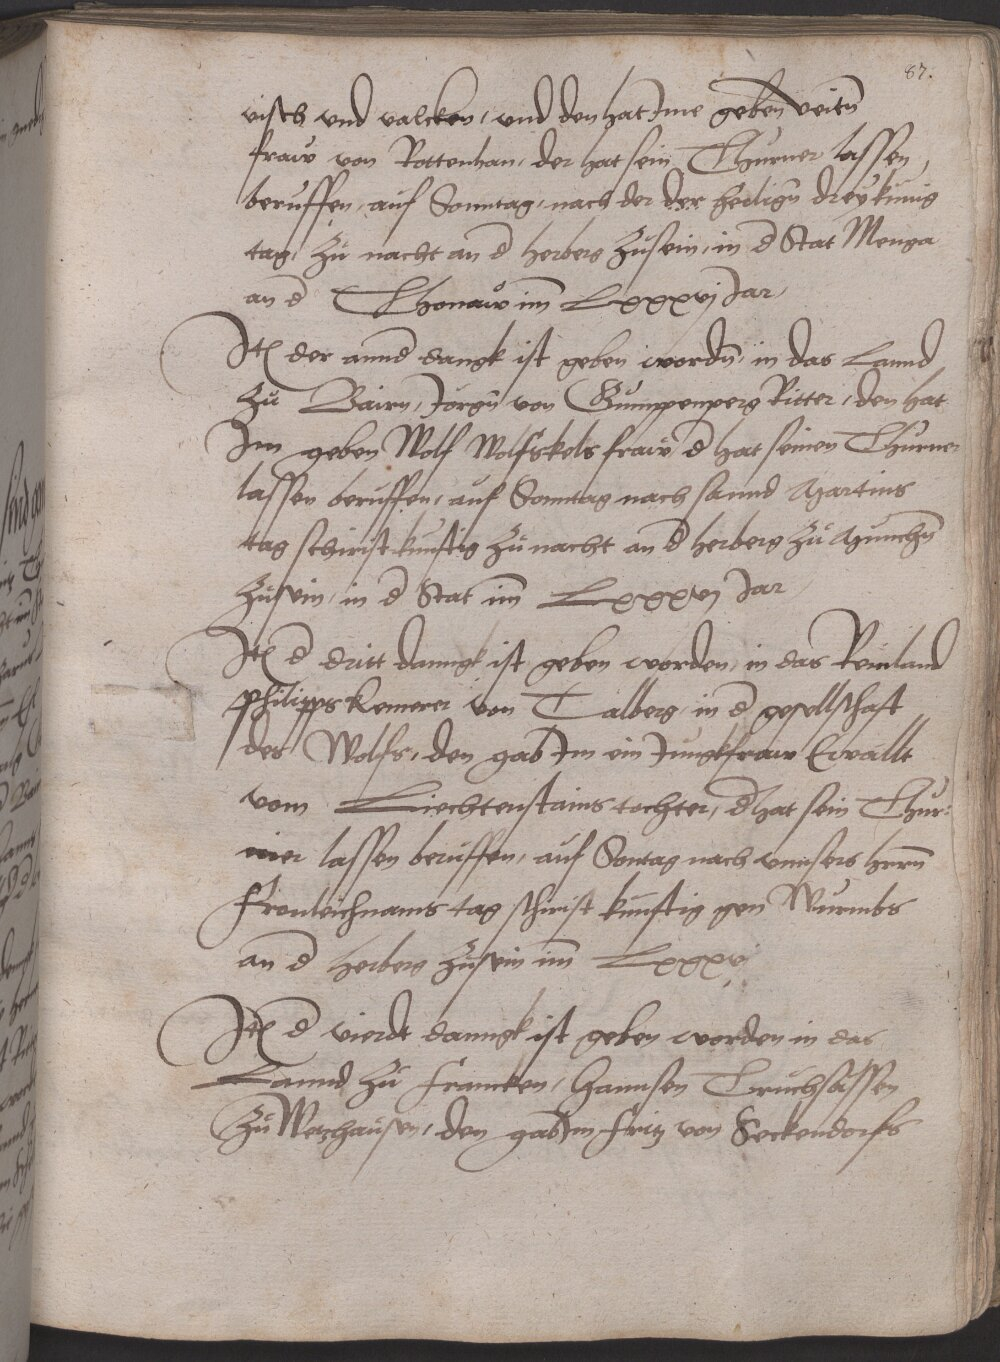 87.
visch und valcken, und den hat Jme geben veitn
fraw von Rottenhan, der hat sein Thurner lassen
beruffen, auf Sonntag, nach der der heilign dreykunig
tag, zu nacht an d herberg zusein, in d Stat Menga
an d Thonaw im Lxxxvj Jar,
Jtem der annd dangk ist geben wordn, in das Lannd
zu Bairn, Jorgn von Gumppenperg Ritter, den hat
Jm geben Wolf Wolfskels fraw d hat seinen Thurner
lassen beruffen, auf Sonntag nach sannd Martins
tag schirist kunftig zu nacht an d herberg zu Munchn
zusein, in d Stat im Lxxxvj Jar
Jtem d dritt danngk ist geben worden, in das Reinland
Philipps kemerer von Talberg, in d gesellschaft
des Wolfs, den gab Jm ein Jungkfraw Ewallt
vom Liechtenstains tochter, d hat sein Thur-
nier lassen beruffen, auf Sontag nach unnsers herrn
fronleichnams tag schirist kunftig gen Wurmbs
an d herberg zusein im Lxxxvj
Jtem d vierdt danngk ist geben worden in das
Lannd zu francken, Hannsen Truchsässen
zu Wetzhausen, den gab Jm fritz von Seckendorfs